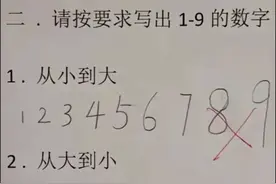 二．请按要求写出 1-9 的数字
1．从小到大
1 2 3 4 5 6 7 8 9
2．从大到小